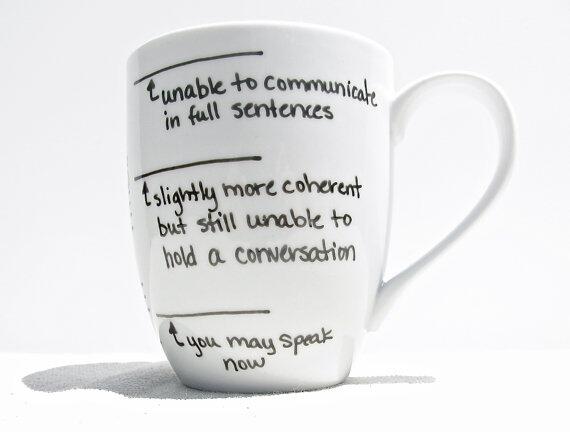 unable to communicate
in full sentences
slightly more coherent
but still unable to
hold a conversation
you may speak
now